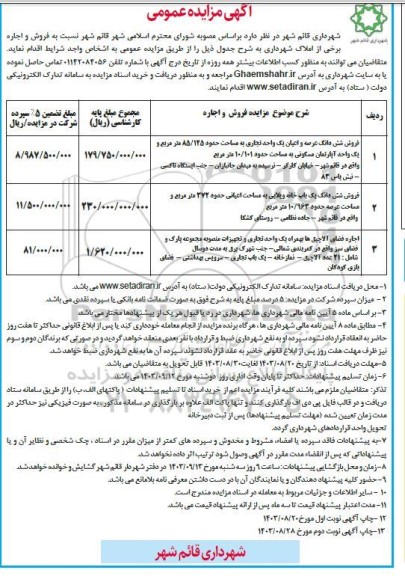 آگهی مزایده عمومی
شهرداری قائم شهر
شهرداری قائم شهر در نظر دارد براساس مصوبه شورای محترم اسلامی شهر قائم شهر نسبت به فروش و اجاره
برخی از املاک شهرداری به شرح جدول ذیل را از طریق مزایده عمومی به اشخاص واجد شرایط اقدام نماید.
متقاضیان می توانند به منظور کسب اطلاعات بیشتر همه روزه از تاریخ درج آگهی با شماره تلفن ۰۱۱۴۲۰۸۴۰۵۶ تماس حاصل نموده
یا به سایت شهرداری به آدرس Ghaemshahr.ir مراجعه و به منظور دریافت و خرید اسناد مزایده به سامانه تدارک الکترونیکی
دولت ( ستاد) به آدرس www.setadiran.ir اقدام نمایند.
ردیف
شرح موضوع مزایده فروش و اجاره
مجموع مبلغ پایه کارشناسی (ریال)
مبلغ تضمین ۵٪ سپرده شرکت در مزایده/ریال
۱
فروش شش دانگ عرصه و اعیان یک واحد تجاری به مساحت حدود ۸۵/۱۴۵ متر مربع و
یک واحد آپارتمان مسکونی به مساحت حدود ۱۰/۱۰۱ متر مربع
واقع در قائم شهر – خیابان کارگر – نرسیده به میدان جانبازان – جنب ایستگاه تاکسی
– نبش یاس ۸۳
۱۷۹/۷۵۰/۰۰۰/۰۰۰
۸/۹۸۷/۵۰۰/۰۰۰
۲
فروش شش دانگ یک باب خانه ویلایی به مساحت اعیانی حدود ۳۷۲ متر مربع و
مساحت عرصه حدود ۱۰/۹۶۳ متر مربع
واقع در قائم شهر – جاده نظامی – روستای کشکا
۲۳۰/۰۰۰/۰۰۰/۰۰۰
۱۱/۵۰۰/۰۰۰/۰۰۰
۳
اجاره فضای آلاچیق ها بهمراه یک واحد تجاری و تجهیزات منصوبه مجموعه پارک و
فضای سبز واقع در کمربندی شمالی – جنب شهرک برق به مدت دوسال
شامل : ۲۱ عدد آلاچیق – نمازخانه – یک باب تجاری – سرویس بهداشتی – فضای
بازی کودکان
۱/۶۲۰/۰۰۰/۰۰۰
۸۱/۰۰۰/۰۰۰
۱- محل دریافت اسناد مزایده: سامانه تدارک الکترونیکی دولت( ستاد) به آدرس www.setadiran.ir می باشد.
۲- میزان سپرده شرکت در مزایده: ۵ درصد مبلغ پایه به شرح فوق به صورت ضمانت نامه بانکی یا سپرده نقدی می باشد.
۳- بر اساس ماده ۵ آیین نامه مالی شهرداری ها، شهرداری در رد یا قبول هر یک از پیشنهادها مختار می باشد.
۴- مطابق ماده ۸ آئین نامه مالی شهرداری ها ، هرگاه برنده مزایده از انجام معامله خودداری کند یا پس از ابلاغ قانونی حداکثر تا هفت روز
حاضر به انعقاد قرارداد نشود سپرده او به نفع شهرداری ضبط و قرارداد با نفر بعدی منعقد خواهد گردید و در صورتی که برندگان دوم و سوم
نیز ظرف مهلت هفت روز پس از ابلاغ قانونی حاضر به عقد قرارداد نشوند سپرده آن ها به نفع شهرداری ضبط خواهد شد.
۵- مهلت دریافت اسناد: از تاریخ ۱۴۰۳/۰۸/۲۰ لغایت ۱۴۰۳/۰۸/۳۰ قابل تحویل به متقاضیان می باشد.
۶- زمان تسلیم پیشنهادات: حداکثر تا پایان وقت اداری روز دوشنبه مورخ ۱۴۰۳/۰۹/۱۲ می باشد.
تذکر: متقاضیان ملزم می باشند کلیه فرآیند مزایده اعم از خرید اسناد تا تسلیم پیشنهادات ( پاکتهای الف،ب) را از طریق سامانه ستاد
دریافت و در قالب فایل پی دی اف بارگذاری کنند و تنها پاکت الف علاوه بر بارگذاری در سامانه مذکور، به صورت فیزیکی نیز حداکثر در
مدت زمان تعیین شده (مهلت تسلیم پیشنهادها) پس از ثبت دبیرخانه
تحویل واحد قراردادهای شهرداری گردد.
۷- به پیشنهادات فاقد سپرده یا امضاء، مشروط و مخدوش و سپرده های کمتر از میزان مقرر در اسناد ، چک شخصی و نظایر آن و یا
پیشنهاداتی که پس از انقضاء مدت مقرر در آگهی وصول شود ترتیب اثر داده نخواهد شد.
۸- زمان و محل بازگشایی پیشنهادات: ساعت ۹ روز سه شنبه مورخ ۱۴۰۳/۰۹/۱۳ در دفتر شهردار قائم شهر گشایش و خوانده خواهد شد.
۹- حضور کلیه پیشنهاد دهندگان و یا نمایندگان آن با در دست داشتن معرفی نامه بلامانع می باشد.
۱۰ – سایر اطلاعات و جزئیات مربوط به معامله در اسناد مزایده مندرج است.
۱۱- مدت اعتبار پیشنهاد قیمت تا سه ماه پس از ارائه پیشنهاد قیمت می باشد.
۱۲- چاپ آگهی نوبت اول مورخ ۱۴۰۳/۰۸/۲۰
۱۳- چاپ آگهی نوبت دوم مورخ ۱۴۰۳/۰۸/۲۸
شهرداری قائم شهر